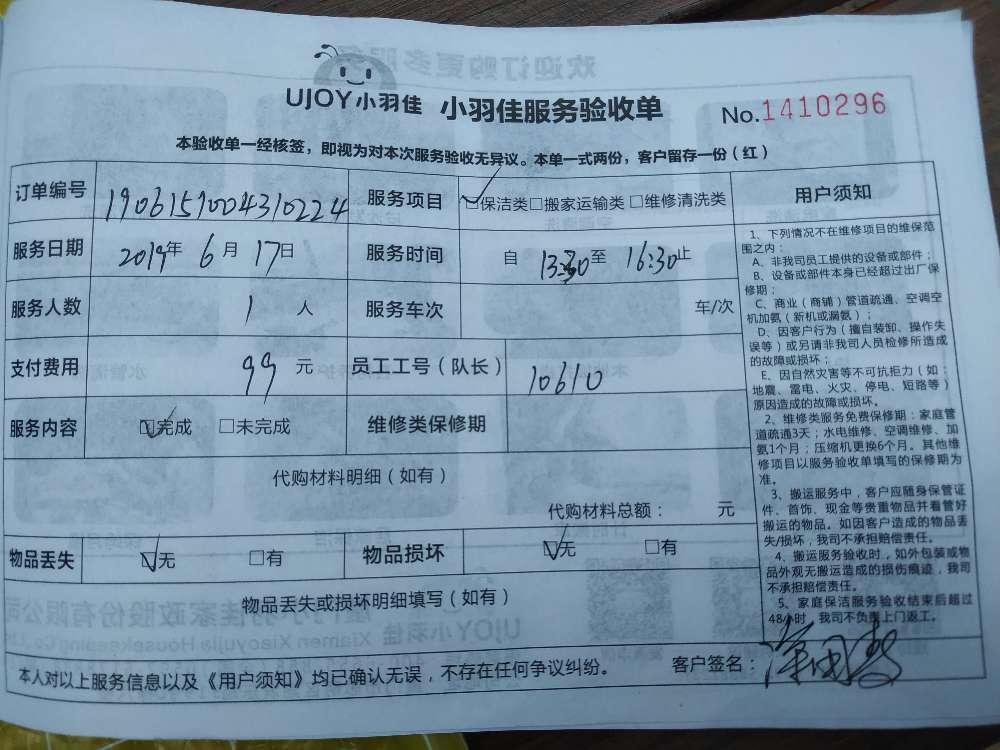 UJOY小羽佳 小羽佳服务验收单 No.1410296
本验收单一经核签，即视为对本次服务验收无异议。本单一式两份，客户留存一份（红）
订单编号 1906157004310224 服务项目 ☑保洁类□搬家运输类□维修清洗类
服务日期 2019年 6月 17日 服务时间 自 13:30至 16:30止
服务人数 1 人 服务车次 车/次
支付费用 99 元 员工工号（队长） 10610
服务内容 ☑完成 □未完成 维修类保修期
代购材料明细（如有）
代购材料总额： 元
物品丢失 ☑无 □有 物品损坏 ☑无 □有
物品丢失或损坏明细填写（如有）
本人对以上服务信息以及《用户须知》均已确认无误，不存在任何争议纠纷。 客户签名：
用户须知
1、下列情况不在维修项目的维保范
围之内：
A、非我司员工提供的设备或部件；
B、设备或部件本身已经超过出厂保
修期；
C、商业（商铺）管道疏通、空调空
机加氨（新机或漏氨）；
D、因客户行为（擅自装卸、操作失
误等）或另请非我司人员检修所造成
的故障或损坏；
E、因自然灾害等不可抗拒力（如：
地震、雷电、火灾、停电、短路等）
原因造成的故障或损坏。
2、维修类服务免费保修期：家庭管
道疏通3天；水电维修、空调维修、加
氨1个月；压缩机更换6个月。其他维
修项目以服务验收单填写的保修期为
准。
3、搬运服务中，客户应随身保管证
件、首饰、现金等贵重物品并看管好
搬运的物品。如因客户造成的物品丢
失/损坏，我司不承担赔偿责任。
4、搬运服务验收时，如外包装或物
品外观无搬运造成的损伤痕迹，我司
不承担赔偿责任。
5、家庭保洁服务验收结束后超过
48小时，我司不负责上门返工。